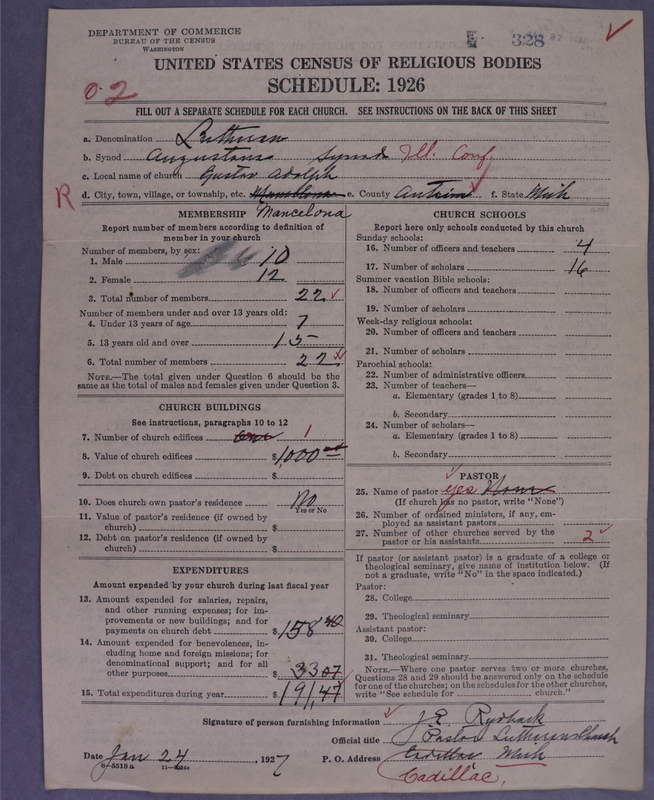 DEPARTMENT OF COMMERCE
BUREAU OF THE CENSUS
WASHINGTON
328
UNITED STATES CENSUS OF RELIGIOUS BODIES
SCHEDULE: 1926
0-2
FILL OUT A SEPARATE SCHEDULE FOR EACH CHURCH. SEE INSTRUCTIONS ON THE BACK OF THIS SHEET
a. Denomination Lutheran
b. Synod Augustana Synod Ill. Conf.
c. Local name of church Gustav Adolph
R d. City, town, village, or township, etc. Mancelona e. County Antrim f. State Mich
MEMBERSHIP Mancelona
Report number of members according to definition of
member in your church
Number of members, by sex:
1. Male 10
2. Female 12
3. Total number of members 22
Number of members under and over 13 years old:
4. Under 13 years of age 7
5. 13 years old and over 15
6. Total number of members 22
NOTE.—The total given under Question 6 should be the
same as the total of males and females given under Question 3.
CHURCH BUILDINGS
See instructions, paragraphs 10 to 12
7. Number of church edifices one 1
8. Value of church edifices $1,000
9. Debt on church edifices $
10. Does church own pastor's residence No
Yes or No
11. Value of pastor's residence (if owned by
church) $
12. Debt on pastor's residence (if owned by
church) $
EXPENDITURES
Amount expended by your church during last fiscal year
13. Amount expended for salaries, repairs,
and other running expenses; for im-
provements or new buildings; and for
payments on church debt $158 40
14. Amount expended for benevolences, in-
cluding home and foreign missions; for
denominational support; and for all
other purposes $ 33 07
15. Total expenditures during year $191,47
CHURCH SCHOOLS
Report here only schools conducted by this church
Sunday schools:
16. Number of officers and teachers 4
17. Number of scholars 16
Summer vacation Bible schools:
18. Number of officers and teachers
19. Number of scholars
Week-day religious schools:
20. Number of officers and teachers
21. Number of scholars
Parochial schools:
22. Number of administrative officers
23. Number of teachers—
a. Elementary (grades 1 to 8)
b. Secondary
24. Number of scholars—
a. Elementary (grades 1 to 8)
b. Secondary
PASTOR
25. Name of pastor yes None
(If church has no pastor, write "None")
26. Number of ordained ministers, if any, em-
ployed as assistant pastors
27. Number of other churches served by the
pastor or his assistants 2
If pastor (or assistant pastor) is a graduate of a college or
theological seminary, give name of institution below. (If
not a graduate, write "No" in the space indicated.)
Pastor:
28. College
29. Theological seminary
Assistant pastor:
30. College
31. Theological seminary
NOTE.—Where one pastor serves two or more churches,
Questions 28 and 29 should be answered only on the schedule
for one of the churches; on the schedules for the other churches,
write "See schedule for church."
Signature of person furnishing information J. E. Rydback
Official title Pastor Lutheran Church
Date Jan 24, 1927 P. O. Address Cadillac Mich
8-5518a
Cadillac.